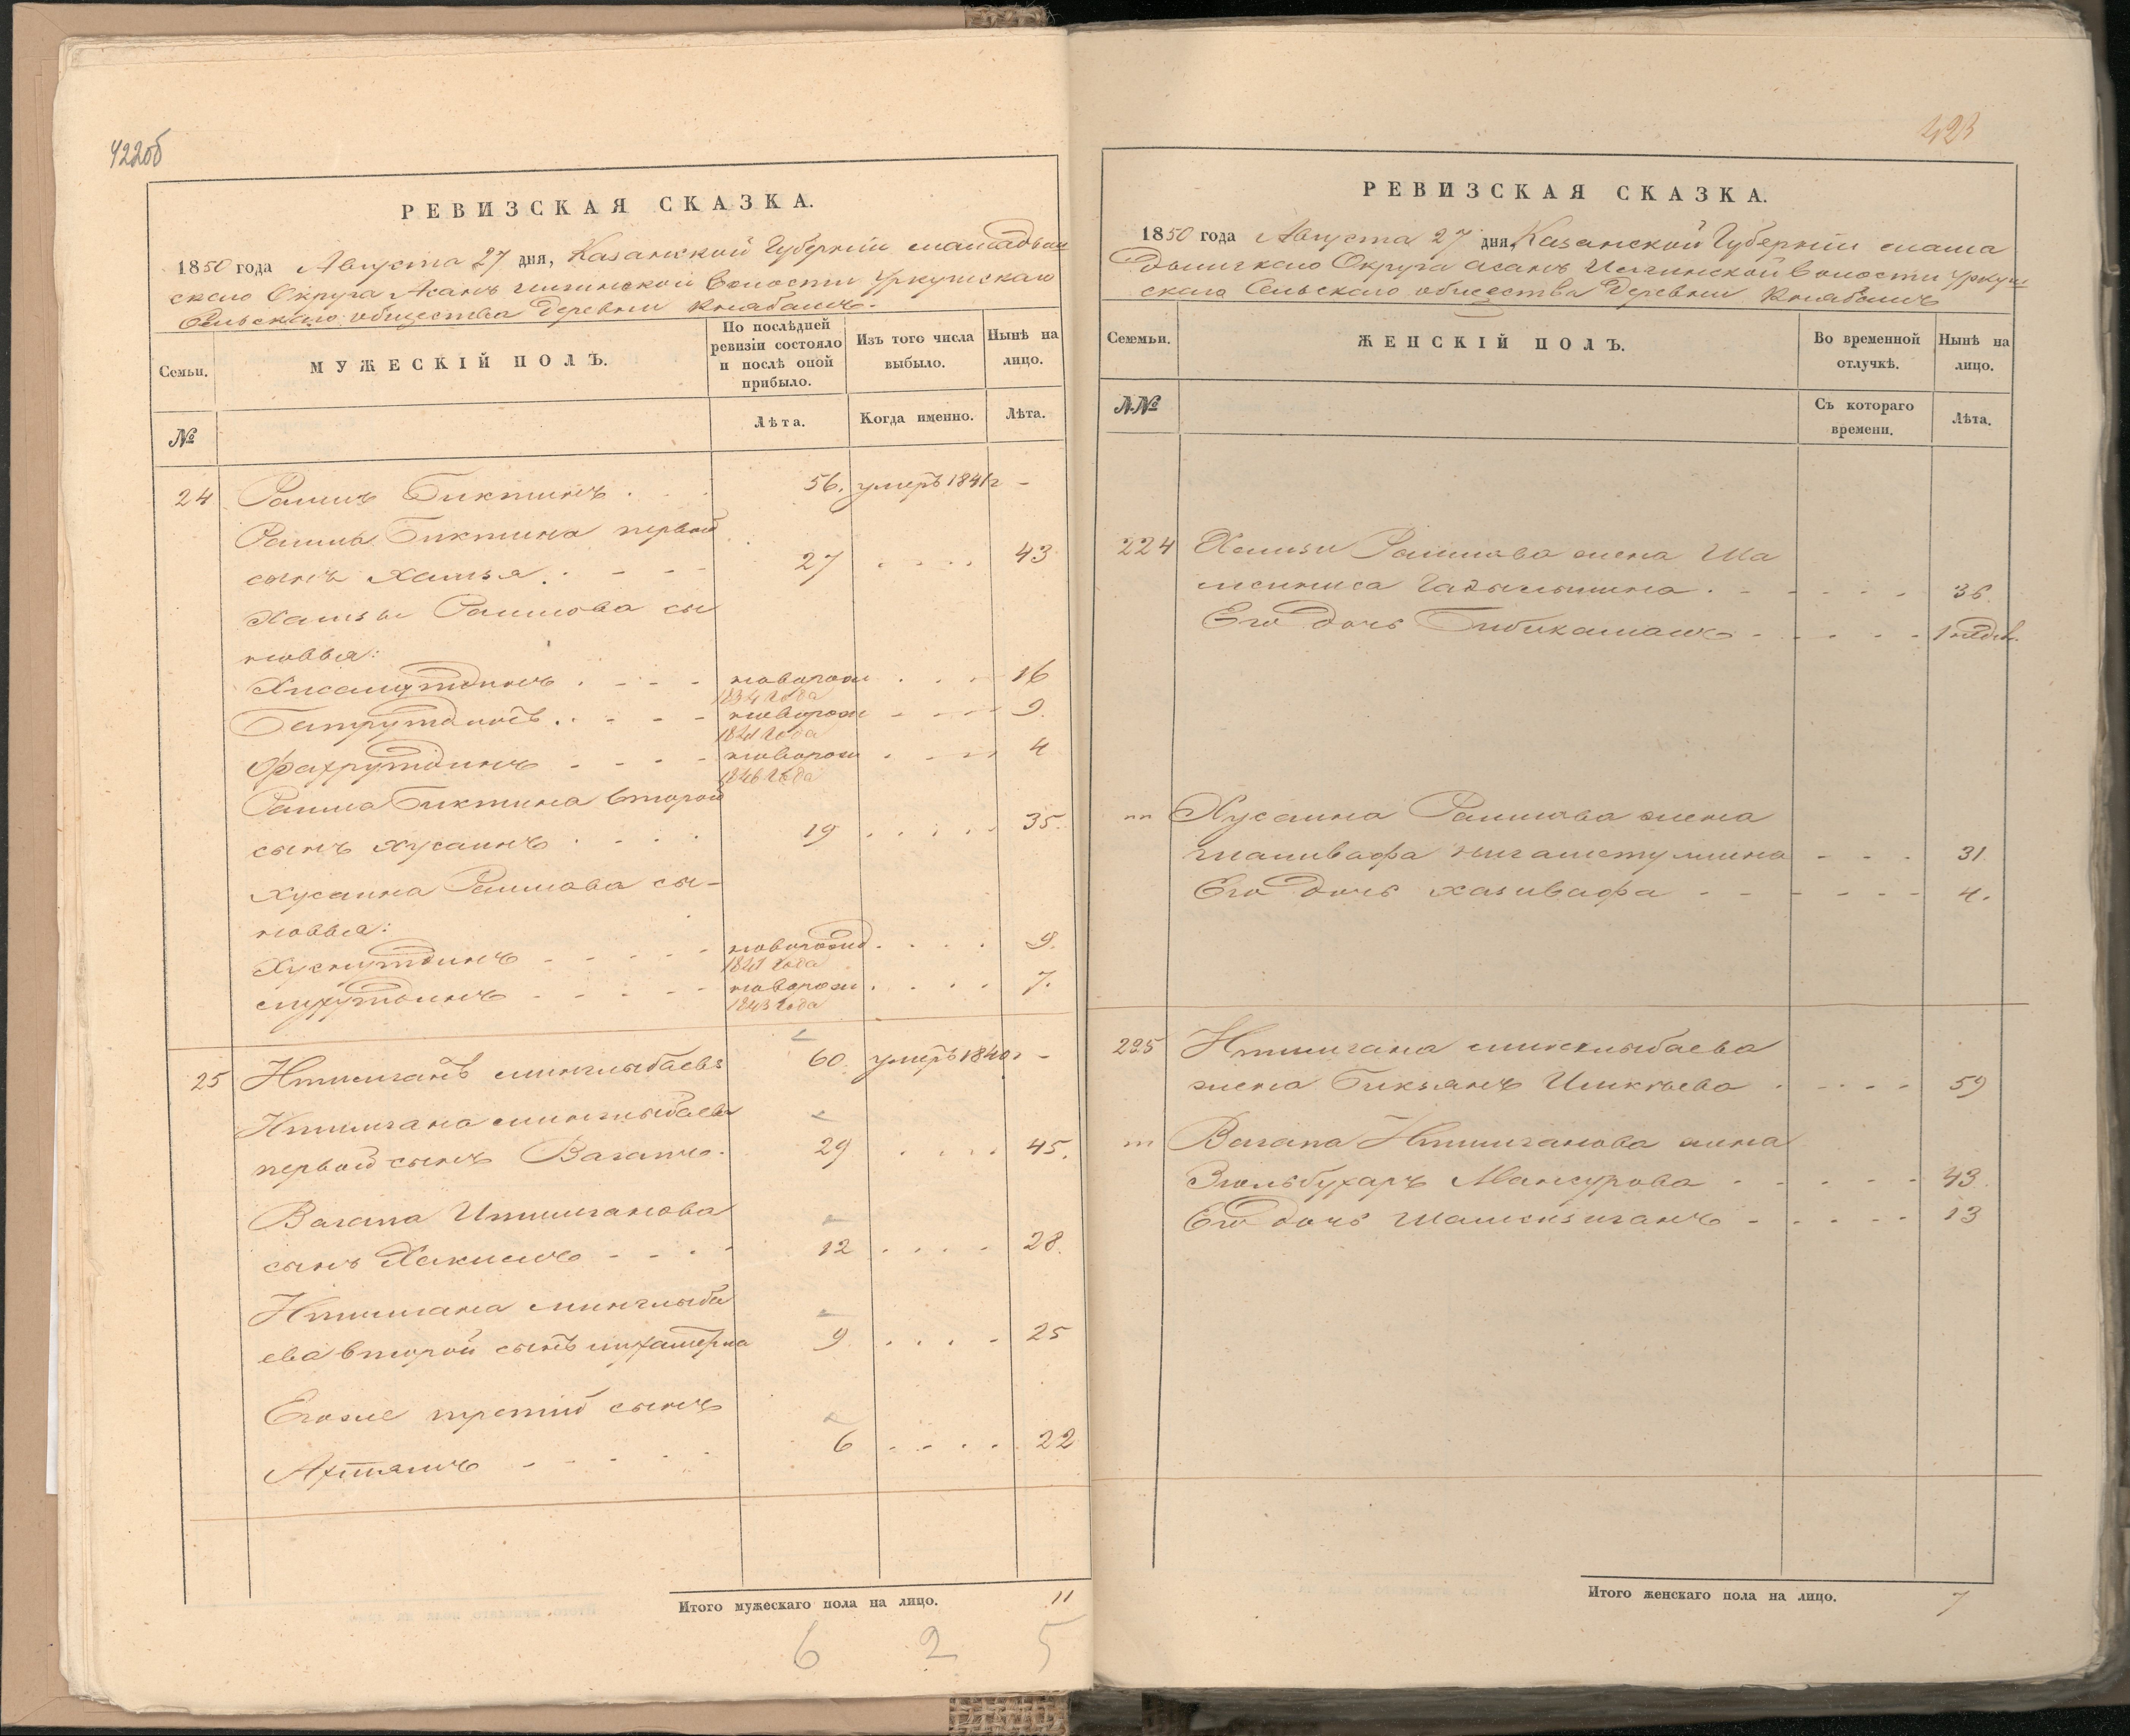 422об
РЕВИЗСКАЯ СКАЗКА.
1850 года Августа 27 дня, Казанской Губерніи мамадыш
скаго Округа Асанъ Илгинской волости Уркушскаго
Сельскаго общества деревни
Семьи.
МУЖЕСКІЙ ПОЛЪ.
По послѣдней ревизіи состояло и послѣ оной прибыло.
Изъ того числа выбыло.
Нынѣ на лицо.
№
Лѣта.
Когда именно.
Лѣта.
24 Рамиъ Биктинъ . . . 56. умеръ 1841 г -
Биктина первой
сынъ Хамзя . - - - 27 . . . . 43
Хамзы сы
новья:
Хисамутдинъ . - - - новорож . . . 16
1834 года
Батрутдинъ . . - - - новорож - - - - 9.
1841 года
Фахрутдинъ - - - - новорож . - - - 4
1846 года
Биктина второй
сынъ Хусаинъ . . . . 19 . . . . . 35.
Хусаина сы-
новья:
Хуснутдинъ - - - - - новорожд . . . . 9.
1841 года
- - - - - новорож . . . . 7.
1843 года
25 Итимганъ минглыбаевъ 60. умеръ 1840 г -
Итимгана минглыбаева
первой сынъ Вагапъ. 29 . . . . 45.
Вагапа Итимганова
сынъ Хакимъ - - - - 12 . . . . 28.
Итимгана минглыба
ева второй сынъ 9 . . . - 25
Егоже третій сынъ
Ахтямъ - - - - - 6 . - . . 22
Итого мужескаго пола на лицо. 11
6 2 5
423
РЕВИЗСКАЯ СКАЗКА.
1850 года Августа 27 дня, Казанской Губерніи мама
дышскаго Округа асанъ Илгинской волости Уркуш
скаго Сельскаго общества деревни
Семьи.
ЖЕНСКІЙ ПОЛЪ.
Во временной отлучкѣ.
Нынѣ на лицо.
№№
Съ котораго времени.
Лѣта.
224 Хамзи жена Ша
мсиниса . - - - - - 36.
Его дочь Бибикамалъ - - - - - 1 недѣл.
Хусаина жена
- - - 31.
Его дочь хазивафа - - - - - - 4.
225 Итимгана минглыбаева
жена Бикзянъ Ишкаева . - - - - 59
Вагапа Итимганова жена
Зюльбухаръ Мансурова - - - - - 43.
Его дочь шамсизиганъ - - - - - 13
Итого женскаго пола на лицо. 7